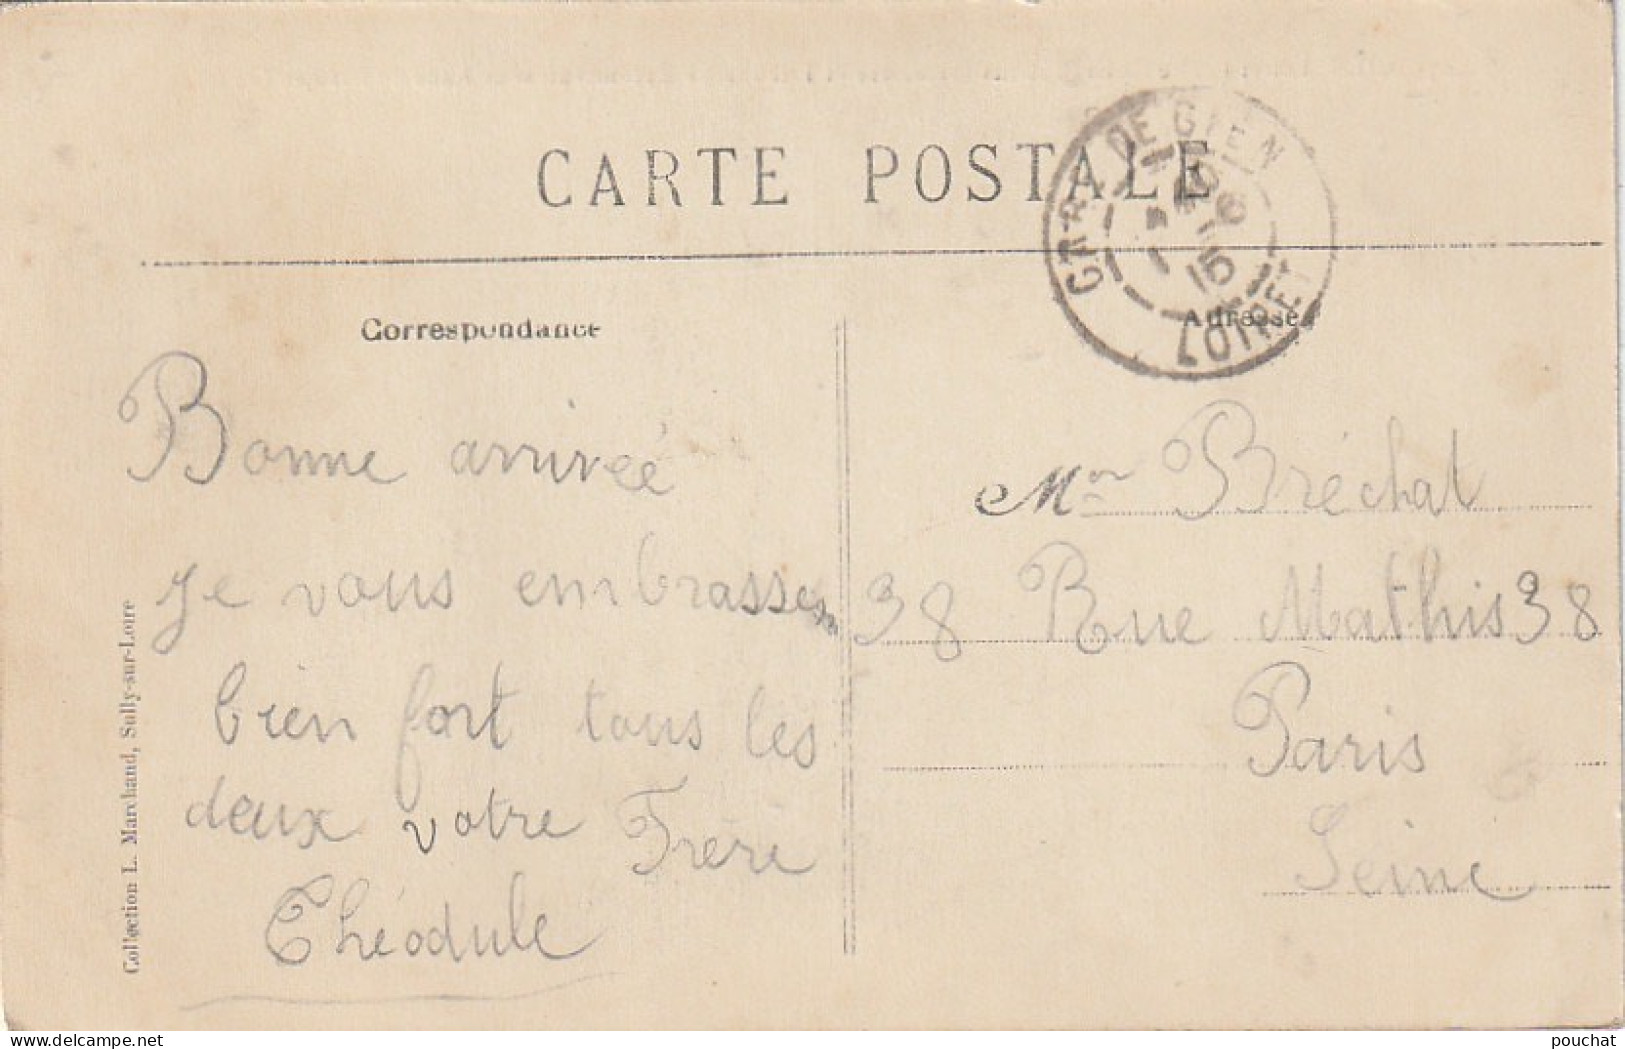 CARTE POSTALE
GARE DE GIEN
15
LOIRET
Correspondance
Adresse
Bonne arrivée
je vous embrassen
bien fort tous les
deux votre Frère
Théodule
Mon Bréchat
38 Rue Mathis 38
Paris
Seine
Collection L. Marchand, Sully-sur-Loire
delcampe.net
pouchat